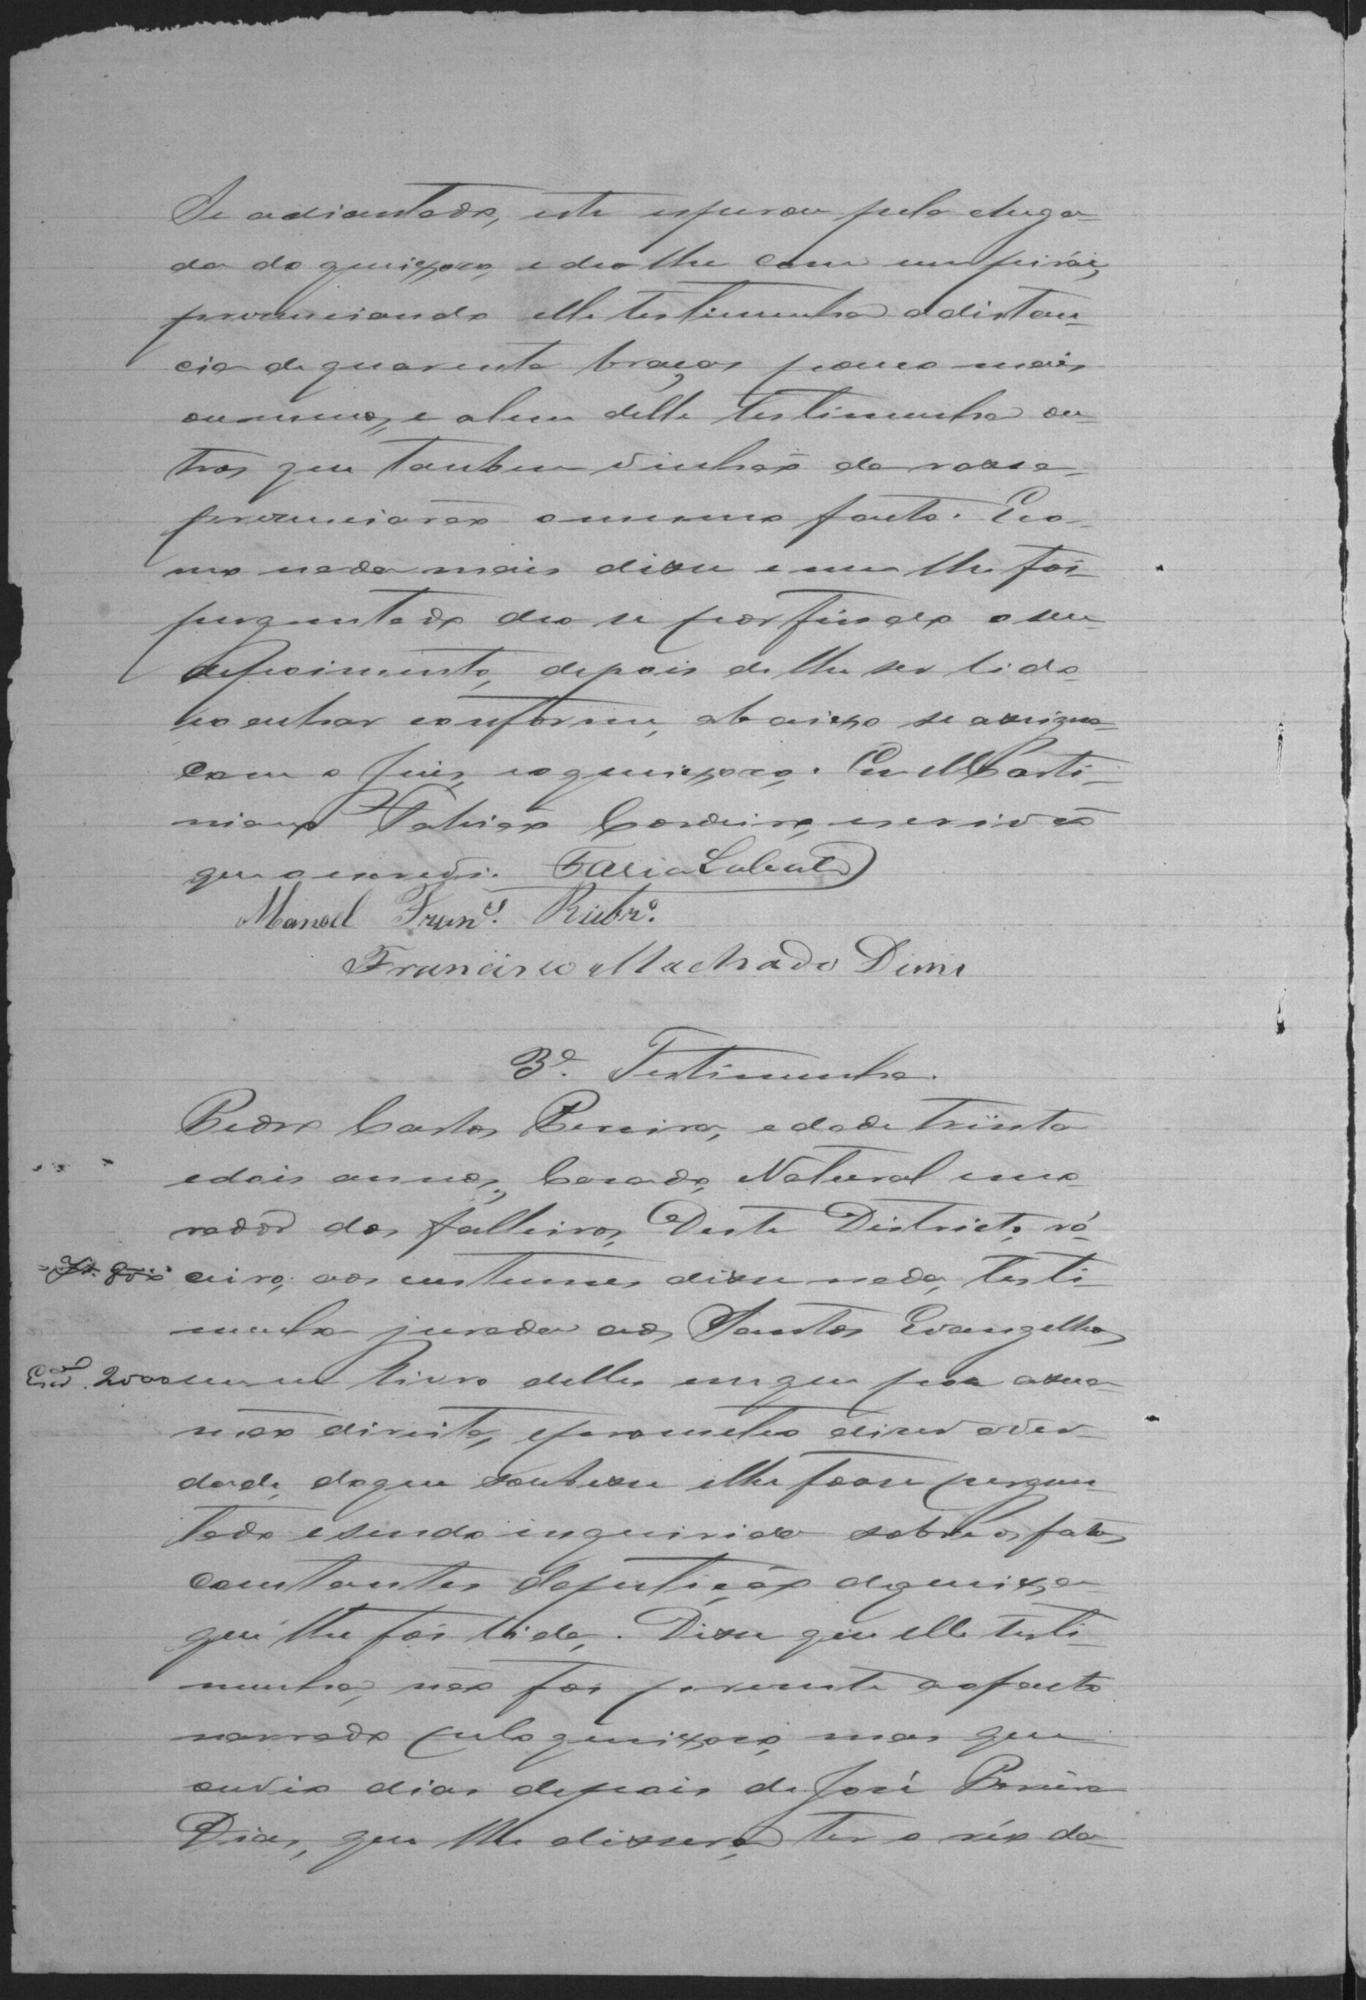 se adiantado, este esperou pela chega-
da do queixoso, e deo lhe com um pirái,
prezenciando elle testimunha a distan-
cia de quarenta braças pouco mais
ou menos, e alem delle testimunha ou-
tros que tambem vinhão da rossa
prezenciarão o mesmo facto. E co-
mo nada mais disse e nem lhe foi
perguntado deo se por findo o seu
depoimento, depois de lhe ser lido
e o achar conforme, abaixo se assigna
com o Juis, e o queixoso. Eu Marti-
niano Fabião Cordeiro, escrivão
que o escrevi. Faria Lobato
Manoel Franco. Ribro.
Francisco Machado Dinis
3ª. Testimunha.
Pedro Carlos Pereira, edade trinta
e dois annos, Casado, Natural e mo-
rador dos Falleiros, Deste Districto, ró-
ceiro, aos custumes disse nada, testi-
munha jurada aos Santos Evangelhos
Escr. 2000
em um livro delles em que poz a sua
mão direita, e prometeo diser a ver-
dade, do que soubesse e lhe fosse pergun-
tado e sendo inquirido sobre os fatos
constantes da petição de queixa
que lhe foi lida. Disse que elle testi-
munha, não foi prezente ao facto
narrado pelo queixoso, mas que
ouvio dias depois de José Pereira
Dias, que lhe dissera, ter o réo da-